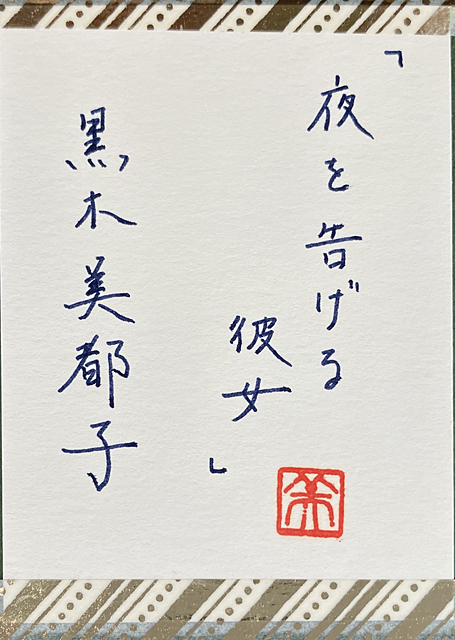 「夜を告げる
彼女」
黒木美都子